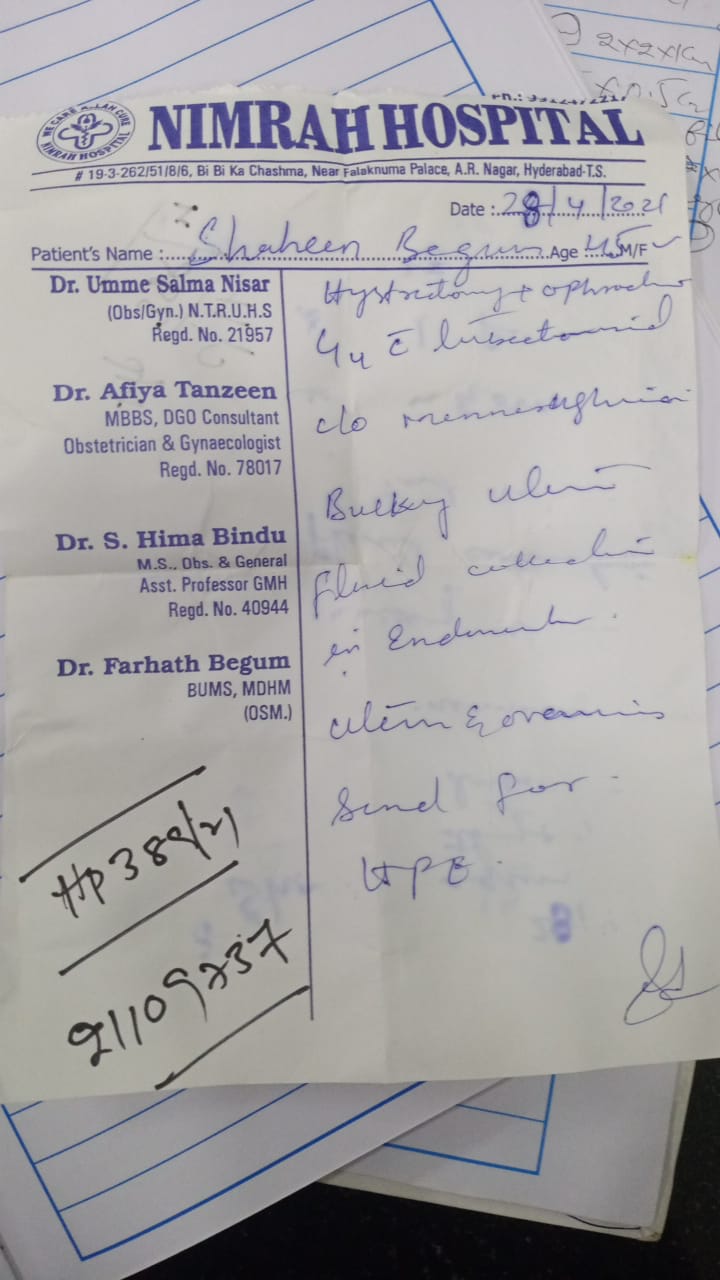 WE CARE ALLAH CURE
NIMRAH HOSPITAL
NIMRAH HOSPITAL
# 19-3-262/51/8/6, Bi Bi Ka Chashma, Near Falaknuma Palace, A.R. Nagar, Hyderabad-T.S.
Date : 28/4/2021
Patient's Name : Shaheen Begum Age 45 M/F
Dr. Umme Salma Nisar
(Obs/Gyn.) N.T.R.U.H.S
Regd. No. 21957
Dr. Afiya Tanzeen
MBBS, DGO Consultant
Obstetrician & Gynaecologist
Regd. No. 78017
Dr. S. Hima Bindu
M.S., Obs. & General
Asst. Professor GMH
Regd. No. 40944
Dr. Farhath Begum
BUMS, MDHM
(OSM.)
Hp 389/21
21109737
c/o
Bulky uterus
fluid collection
in
uterus & ovaries
Send for
HPE
2x2x1cm